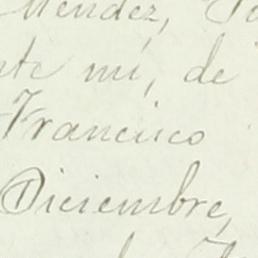 Méndez,
nte mi, de
Francisco
Diciembre,